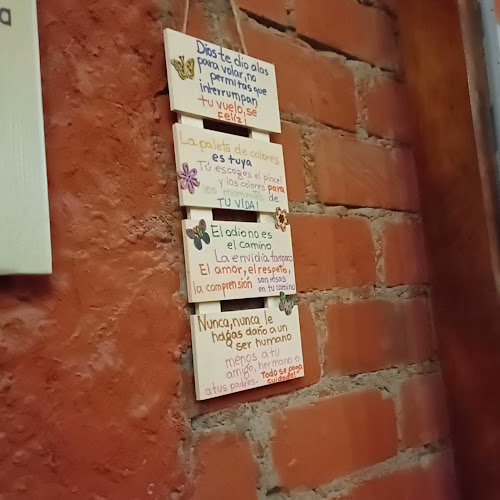 a
Dios te dió alas
para volar, no
permitas que
interrumpan
tu vuelo, se
Feliz!
La paleta de colores
es tuya
Tú escoges el pincel
y los colores para
los momentos de
TU VIDA!
El odio no es
el camino
La envidia tampoco
El amor, el respeto,
la comprensión son rosas
en tu camino
Nunca, nunca le
hagas daño a un
ser humano
menos a tu
amigo, hermano o
a tus padres- Todo se paga
cuidado!